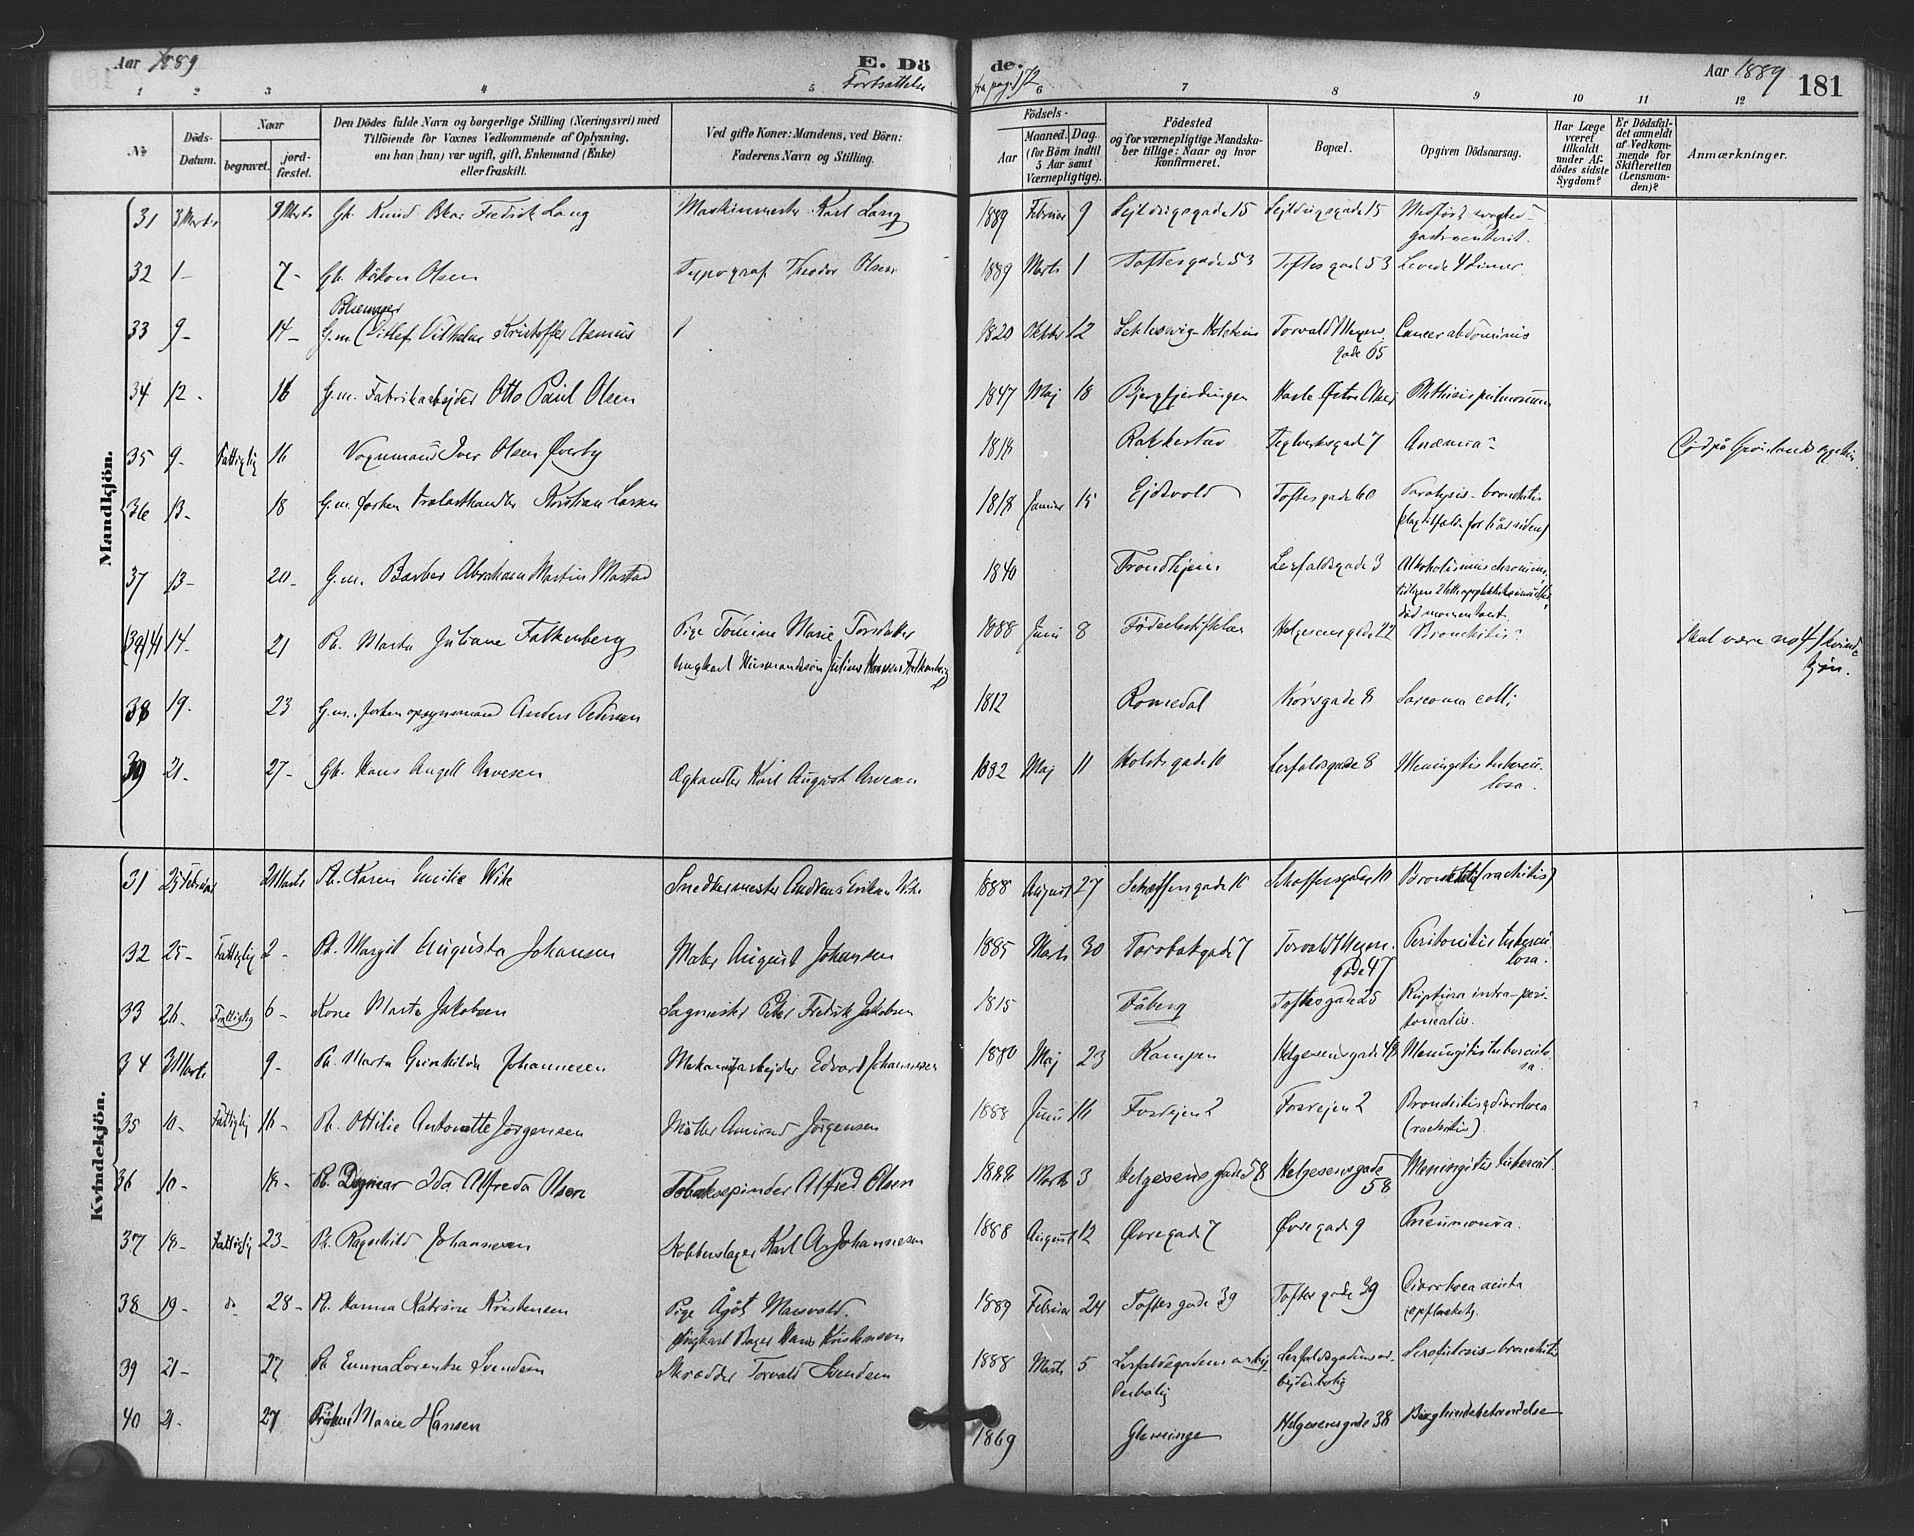 Aar 1889
E. Dö
Fortsættelse
de.
fra pag. 172
Aar 1889
181
1 2 3 4 5 6 7 8 9 10 11 12
№
Döds-Datum.
Naar
begravet.
jord-fæstet.
Den Dödes fulde Navn og borgerlige Stilling (Næringsvei) med
Tilföiende for Voxnes Vedkommende af Oplysning,
om han (hun) var ugift, gift, Enkemand (Enke)
eller fraskilt.
Ved gifte Koner: Mandens, ved Börn:
Faderens Navn og Stilling.
Födsels-
Aar
Maaned. Dag.
(for Börn indtil
5 Aar samt
Værnepligtige).
Födested
og for værnepligtige Mandska-
ber tillige: Naar og hvor
konfirmeret.
Bopæl.
Opgiven Dödsaarsag.
Har Læge
været
tilkaldt
under Af-
dödes sidste
Sygdom?
Er Dödsfal-
det anmeldt
af Vedkom-
mende for
Skifteretten
(Lensman-
den)?
Anmærkninger.
Mandkjön.
31 3 Marts 9 Marts Gb. Knud Fredrik Lang Maskinmester Karl Lang 1889 Februar 9 15 15 Medfødt
32 1- 7- Gb. Håkon Olsen Typograf Theodor Olsen 1889 Marts 1 Toftesgade 53 Toftesgade 53 Levede 4 Timer.
33 9- 14- G.m. Ditlef Vilhelm Kristoffer Asmus 1820 Oktober 12 Schleswig-Holstein Torvald Meyers
gade 65 Cancer abdominis
34 12- 16 G.m. Fabrikarbejder Otto Paul Olsen 1847 Maj 18 Bjergfjerdingen Hasle Østre Aker Phthisis pulmonum
35 9- Fattiglig 16 Vognmand Iver Olsen Øverby 1818 Rakkestad Teglverksgade 7 Anæmia?
36 13- 18 G.m. forhen Trælasthandler Kristian Larsen 1818 Januar 15 Ejdsvold Toftesgade 60 Paralysis - bronchitis
37 13- 20- G.m. Barber Abraham Martin Mostad 1840 Trondhjem Lerfaldsgade 3 Alkoholismus chronicus,
død momentant.
14- 21 Pb. Marta Juliane Falkenberg Pige Tomine Marie Torsdatter
Ungkarl Husmandssøn Julius Hansen Falkenberg 1888 Juni 8 Fødselsstiftelsen Helgesensgade 22 Bronchitis? Skal være no 41 Kvinde-
kjøn.
38 19- 23 G.m. forhen opsynsmand Anders Pedersen 1812 Romedal Korsgade 8 Sarcoma colli
39 21- 27- Gb. Hans Angell Arvesen Karl August Arvesen 1882 Maj 11 Holstsgade 10 Lerfaldsgade 8 Meningitis tubercu-
losa.
Kvindekjön.
31 25 Februar 2 Marts Pb. Karen Emilie Wike Snedkermester Andreas Eriksen Wike 1888 August 27 Schæffersgade 10 Schæffersgade 10 Bronchitis (rachitis)
32 25- Fattiglig 2- Pb. Margit Augusta Johansen Maler August Johansen 1885 Marts 30 Torvbakgade 7 Torvald Meyers
gade 47 Peritonitis tubercu-
losa.
33 26- Fattiglig 6- Kone Marte Jakobsen Sagmester Peter Fredrik Jakobsen 1815 Fåberg Toftesgade 25 Ruptura intra-peri-
tonealis.
34 3 Marts 9- Pb. Marta Gunhilda Johannesen Mekanisk arbejder Edvard Johannesen 1880 Maj 23 Kampen Helgesensgade 48 Meningitis tuberculo-
sa.
35 10- Fattiglig 16- Pb. Ottilie Antonette Jørgensen Møller Amund Jørgensen 1888 Juni 16 Fossvejen 2 Fossvejen 2 Bronchitis & diarrhoea
(rachitis).
36 10- 18- Pb. Dagmar Ida Alfreda Olsen Tobakspinder Alfred Olsen 1888 Marts 3 Helgesensgade 58 Helgesensgade
58 Meningitis tubercul.
37 18- Fattiglig 23- Pb. Ragnhild Johannesen Kobberslager Karl A. Johannesen 1888 August 12 Øvregade 7 Øvregade 9 Pneumonia.
38 19- do 28- Pb. Hanna Katrine Kristensen Pige Ågot
Ungkarl Bager Hans Kristensen 1889 Februar 24 Toftesgade 39 Toftesgade 39 Diarrhoea acuta
39 21- 27 Pb. Emma Lorentse Svendsen Skrædder Torvald Svendsen 1888 Marts 5 Lerfaldsgadens arbej-
derbolig Lerfaldsgadens ar-
bejderbolig Scrofulosis - bronchitis
40 21- 27 Frøken Marie Hansen 1869 Glemminge Helgesensgade 38